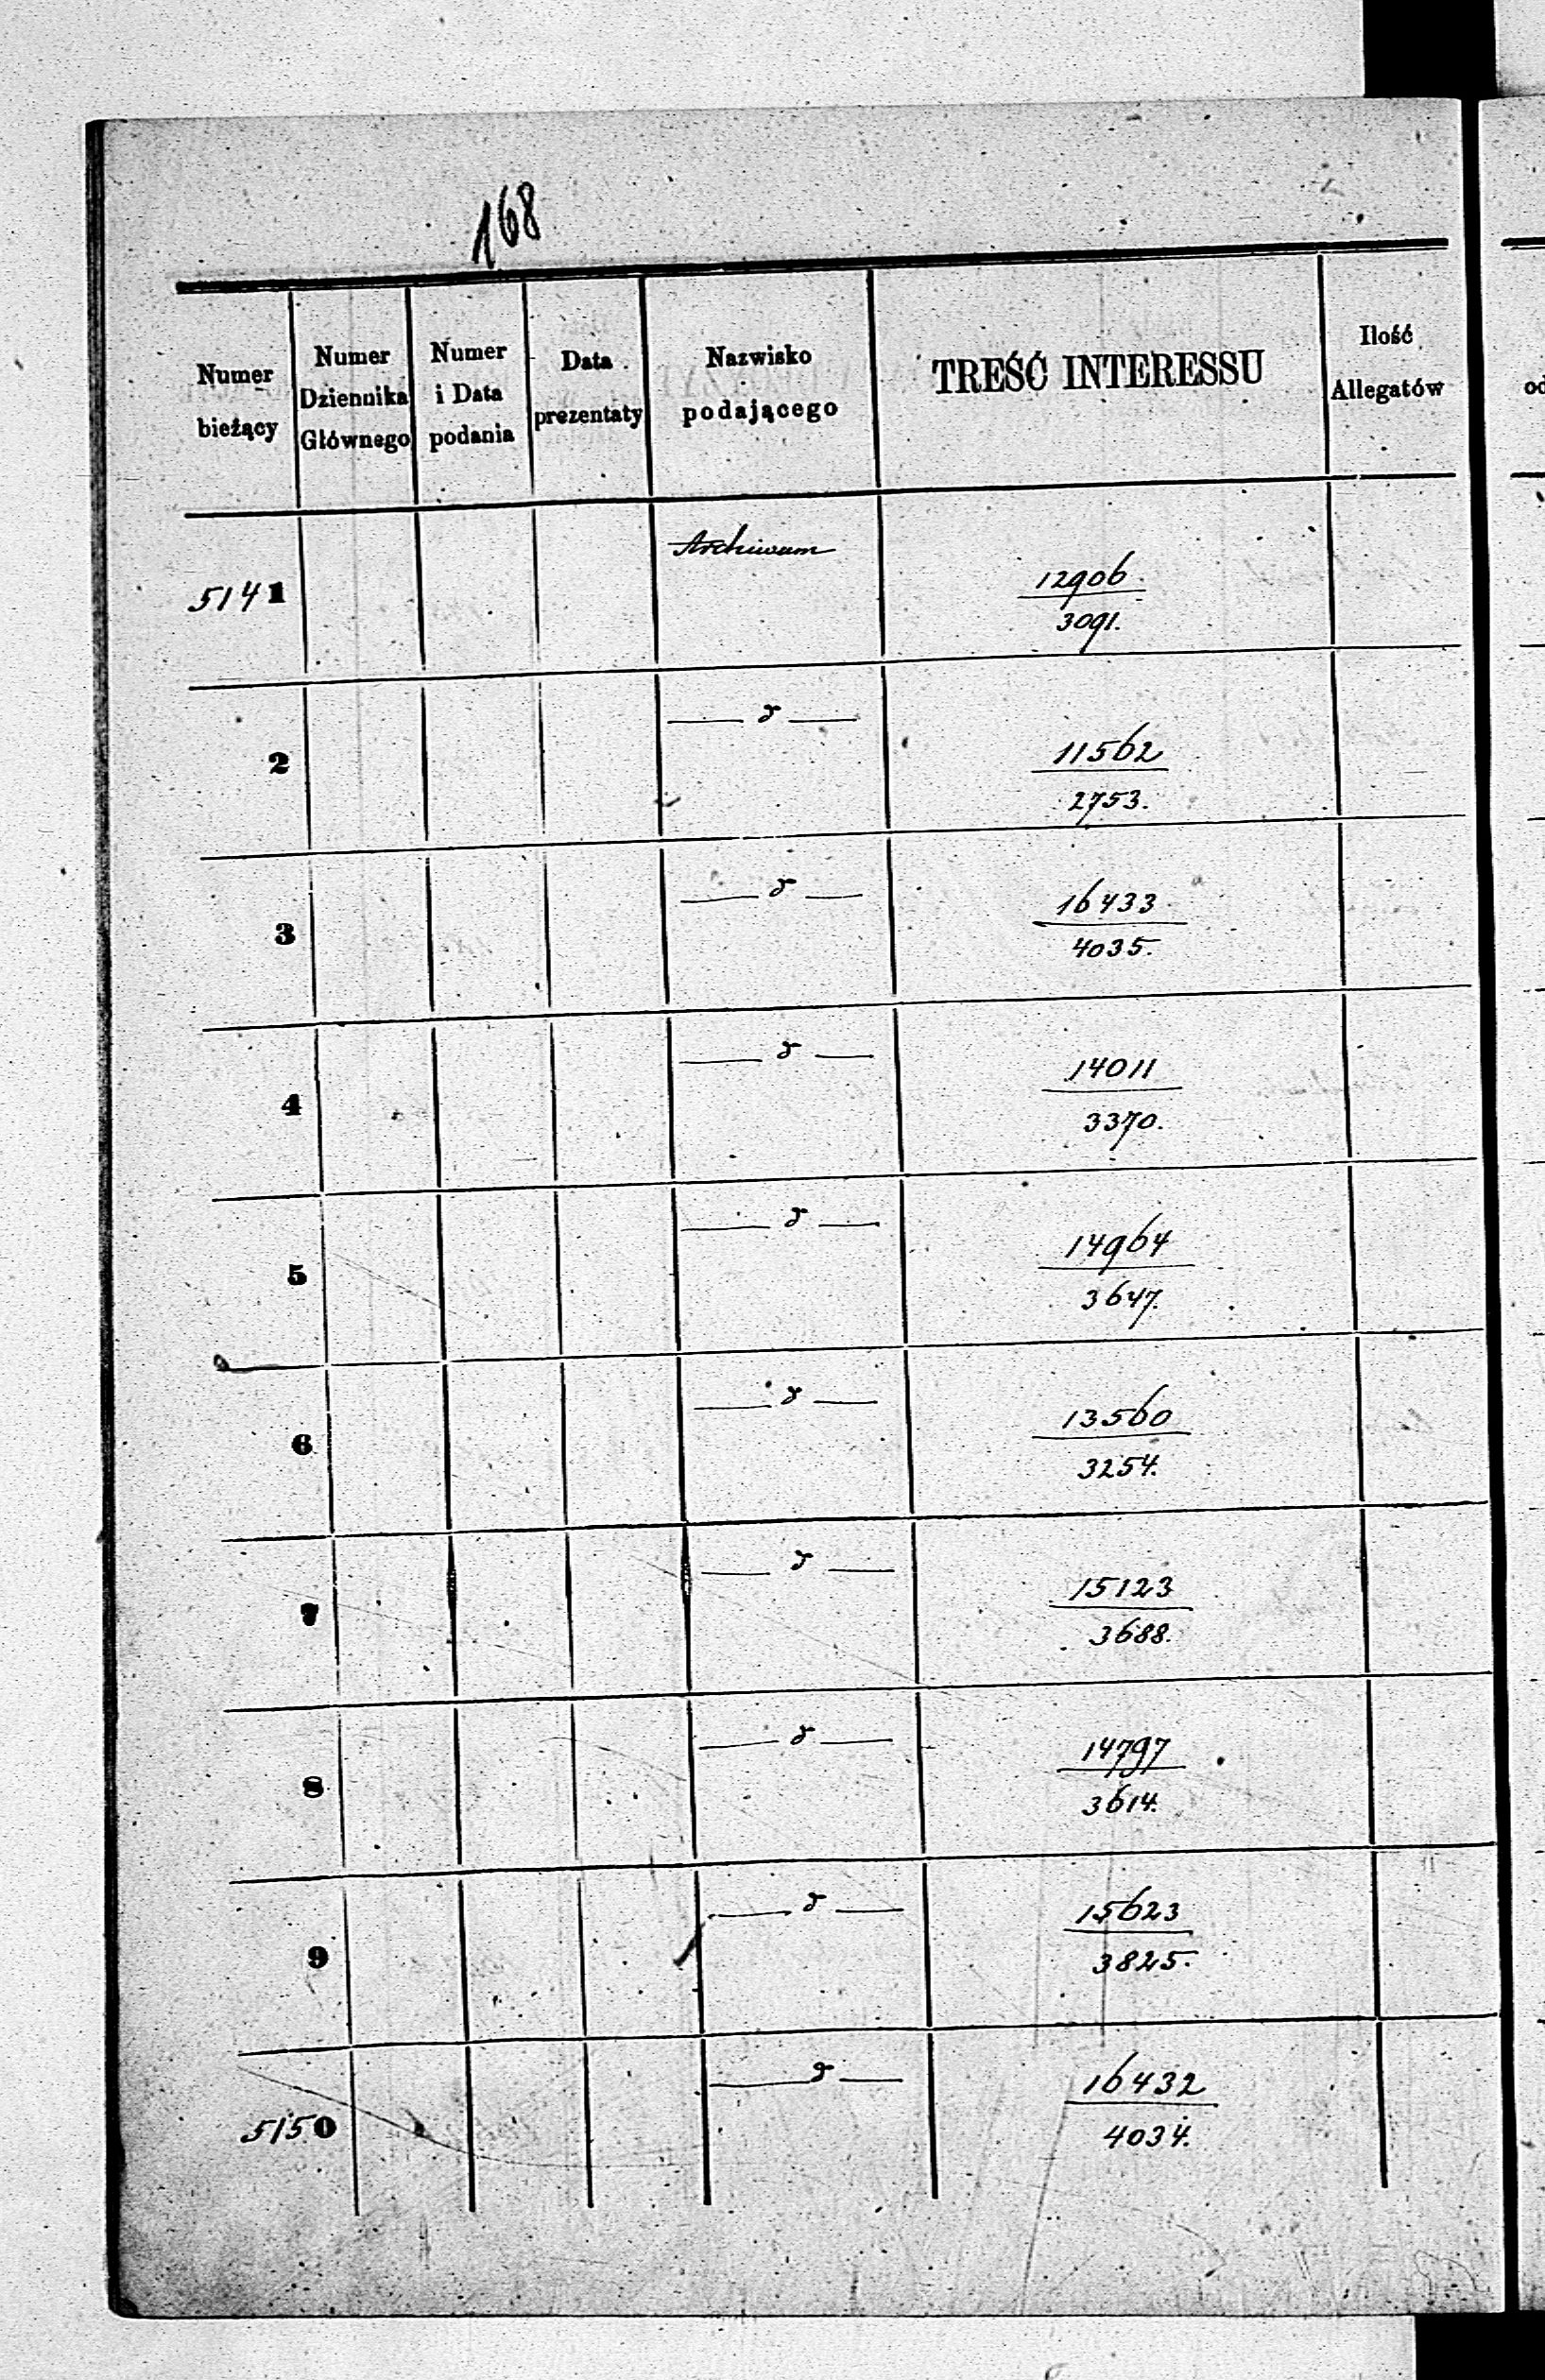 168
Numer bieżący
Numer Dziennika Głównego
Numer i Data podania
Data prezentaty
Nazwisko podającego
TREŚĆ INTERESSU
Ilość Allegatów
od
5141 Archiwum 12906
3091.
2 — d — 11562
2753.
3 — d — 16433
4035.
4 — d — 14011
3370.
5 — d — 14964
3647.
6 — d — 13560
3254.
7 — d — 15123
3688.
8 — d — 14797
3614.
9 — d — 15623
3825.
5150 — d — 16432
4034.